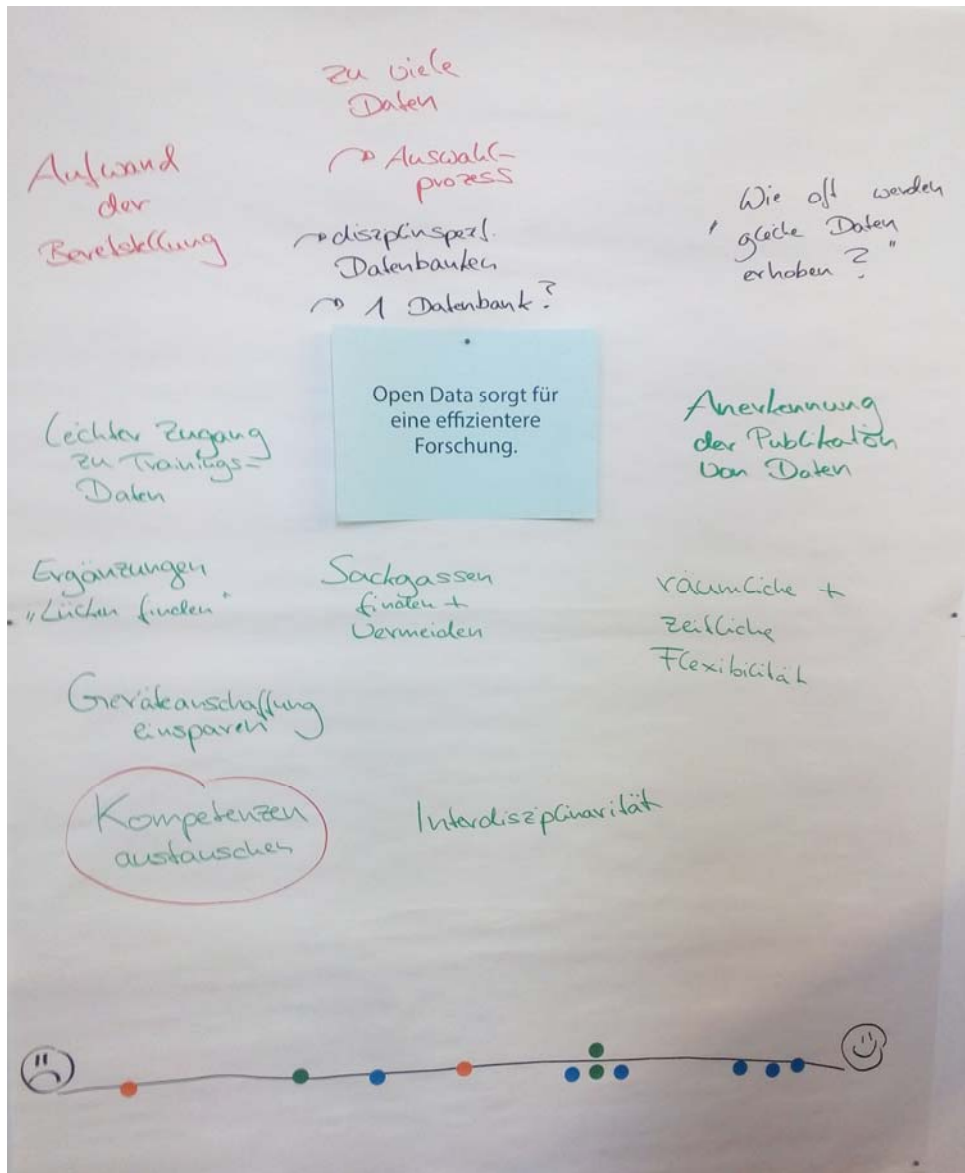 zu viele
Daten
Auswahl-
prozess
Aufwand
der
Bereitstellung
diszplinspezf.
Datenbanken
1 Datenbank?
Wie oft werden
" gleiche Daten
erhoben ? "
Open Data sorgt für
eine effizientere
Forschung.
Leichter Zugang
zu Trainings-
Daten
Anerkennung
der Publikation
von Daten
Ergänzungen
„Lücken finden"
Sackgassen
finden +
Vermeiden
räumliche +
zeitliche
Flexibilität
Geräteanschaffung
einsparen
Kompetenzen
austauschen
Interdisziplinarität